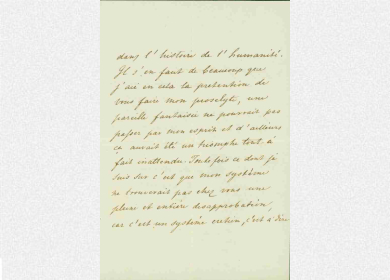 dans l'histoire de l'humanité.
Il s'en faut de beaucoup que
j'aie en cela la prétention de
vous faire mon prosélyte, une
pareille fantaisie ne pouvait pas
passer par mon esprit et d'ailleurs
ça aurait été un triomphe tout à
fait inattendu. Toutefois ce dont je
suis sûr c'est que mon système
ne trouverait pas chez vous une
pleine et entière désapprobation,
car c'est un système entier, c'est à dire